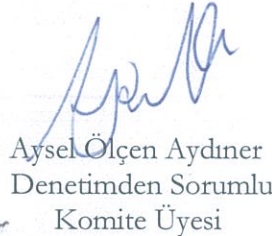 Aysel Ölçen Aydıner
Denetimden Sorumlu
Komite Üyesi